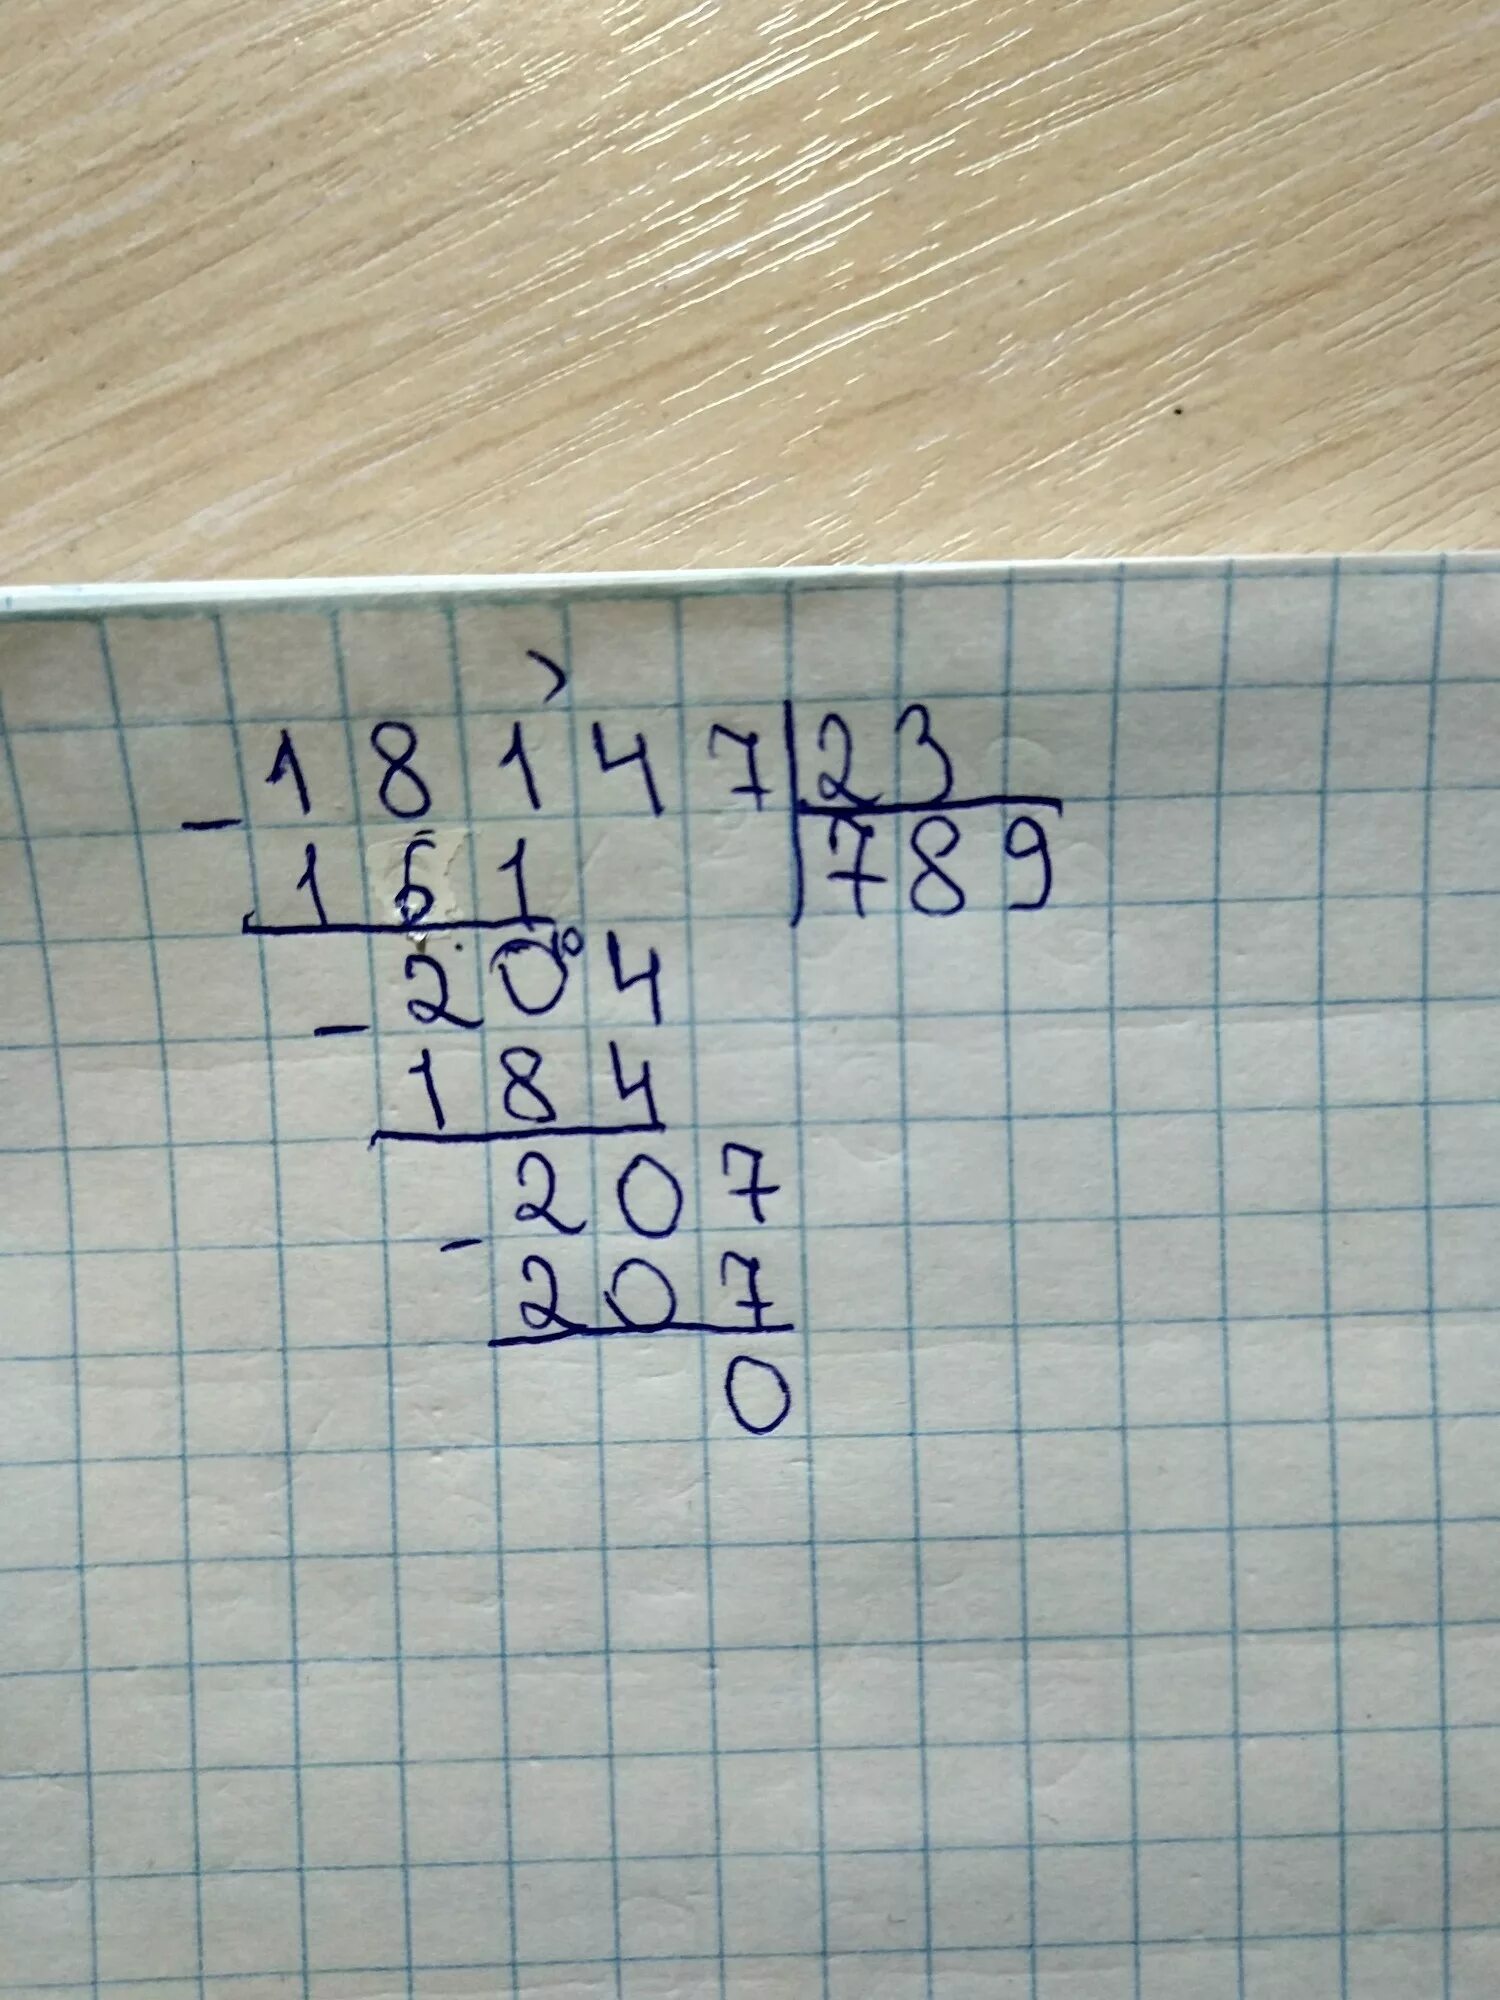 - 1 8 1 4 7 | 23
1 6 1 | 789
- 2 0 4
1 8 4
- 2 0 7
2 0 7
0